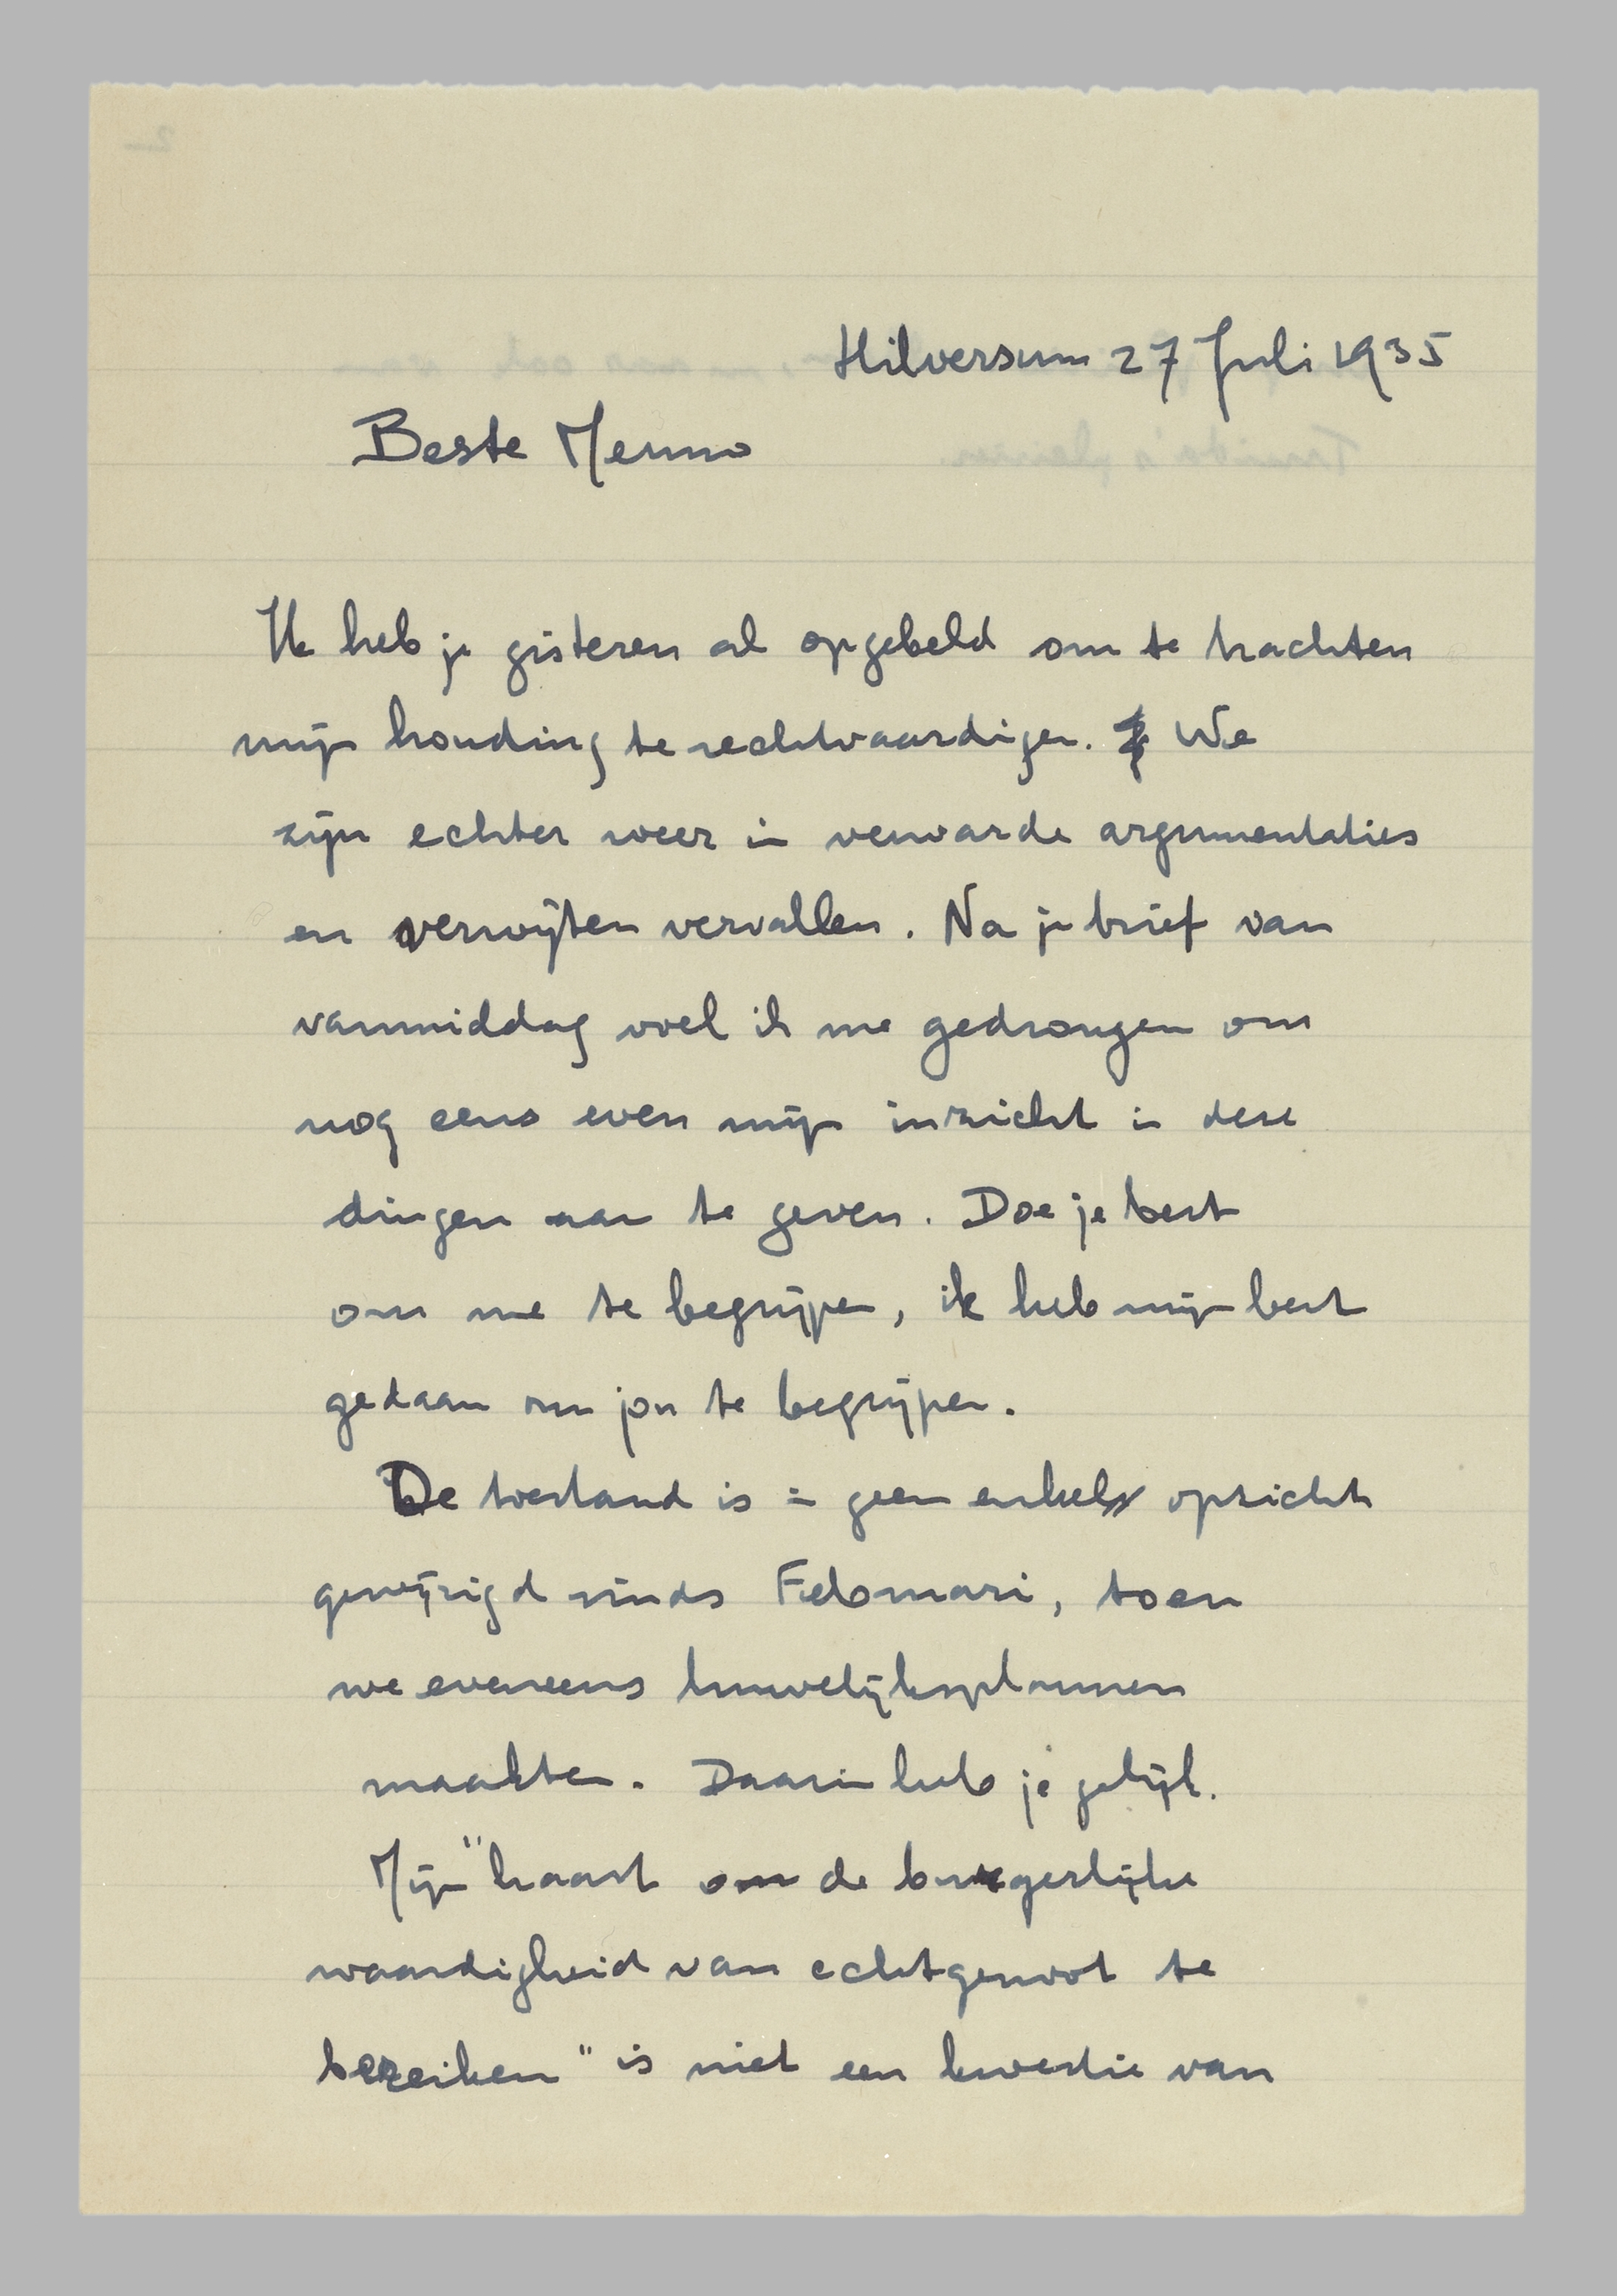 Hilversum 27 Juli 1935
Beste Menno
Ik heb je gisteren al opgebeld om te trachten
mijn houding te rechtvaardigen. We
zijn echter weer in verwarde argumentaties
en verwijten vervallen. Na je brief van
vanmiddag voel ik me gedrongen om
nog eens even mijn inzicht in deze
dingen aan te geven. Doe je best
om me te begrijpen, ik heb mijn best
gedaan om jou te begrijpen.
De toestand is in geen enkel opzicht
gewijzigd sinds Februari, toen
we eveneens huwelijksplannen
maakten. Daarin heb je gelijk.
Mijn "haast om de burgerlijke
waardigheid van echtgenoot te
bereiken" is niet een kwestie van